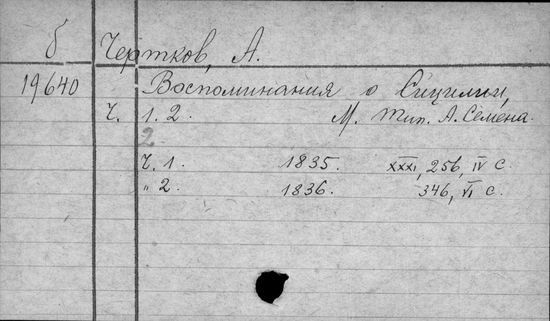 б Чертков, А.
19640 Воспоминания о Сицилии,
Ч. 1. 2. М. Тип. А. Семена.
2
Ч. 1. 1835. XXXI, 256, IV с.
„ 2. 1836. 346, VI с.